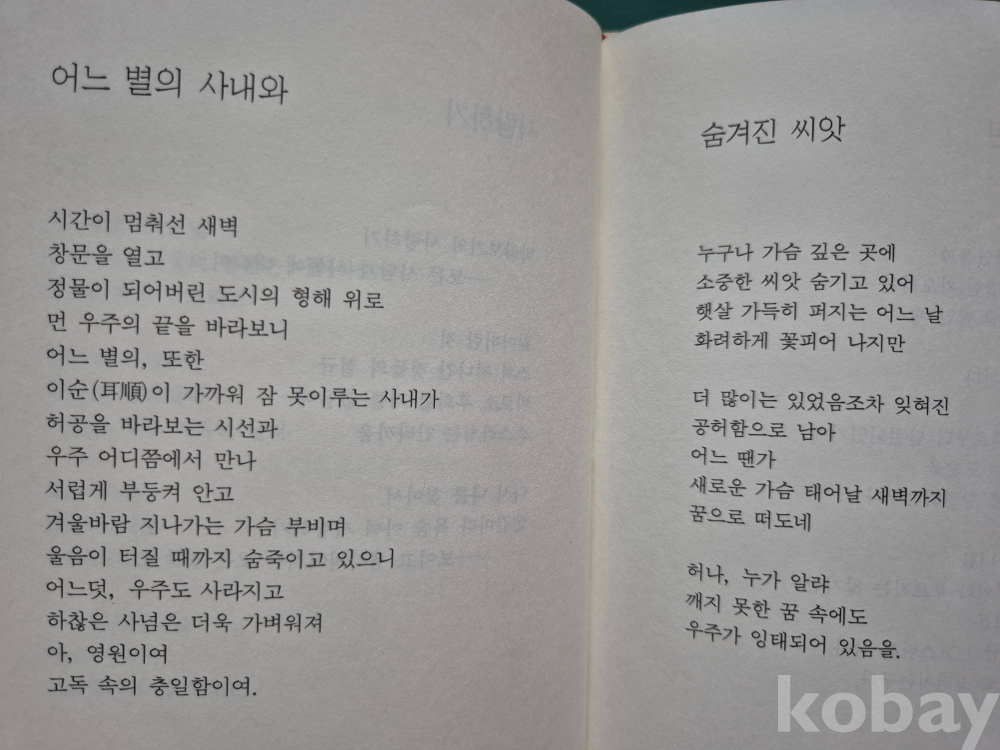 어느 별의 사내와
시간이 멈춰선 새벽
창문을 열고
정물이 되어버린 도시의 형해 위로
먼 우주의 끝을 바라보니
어느 별의, 또한
이순(耳順)이 가까워 잠 못이루는 사내가
허공을 바라보는 시선과
우주 어디쯤에서 만나
서럽게 부둥켜 안고
겨울바람 지나가는 가슴 부비며
울음이 터질 때까지 숨죽이고 있으니
어느덧, 우주도 사라지고
하찮은 사념은 더욱 가벼워져
아, 영원이여
고독 속의 충일함이여.
숨겨진 씨앗
누구나 가슴 깊은 곳에
소중한 씨앗 숨기고 있어
햇살 가득히 퍼지는 어느 날
화려하게 꽃피어 나지만
더 많이는 있었음조차 잊혀진
공허함으로 남아
어느 땐가
새로운 가슴 태어날 새벽까지
꿈으로 떠도네
허나, 누가 알랴
깨지 못한 꿈 속에도
우주가 잉태되어 있음을.
kobay